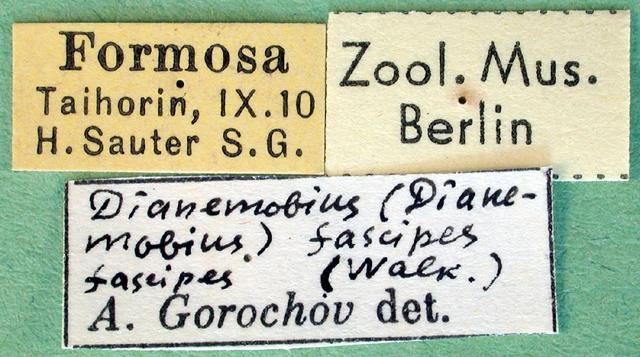 Formosa
Taihorin, IX.10
H. Sauter S.G.
Zool. Mus.
Berlin
Dianemobius (Diane-
mobius) fascipes
fascipes (Walk.)
A. Gorochov det.